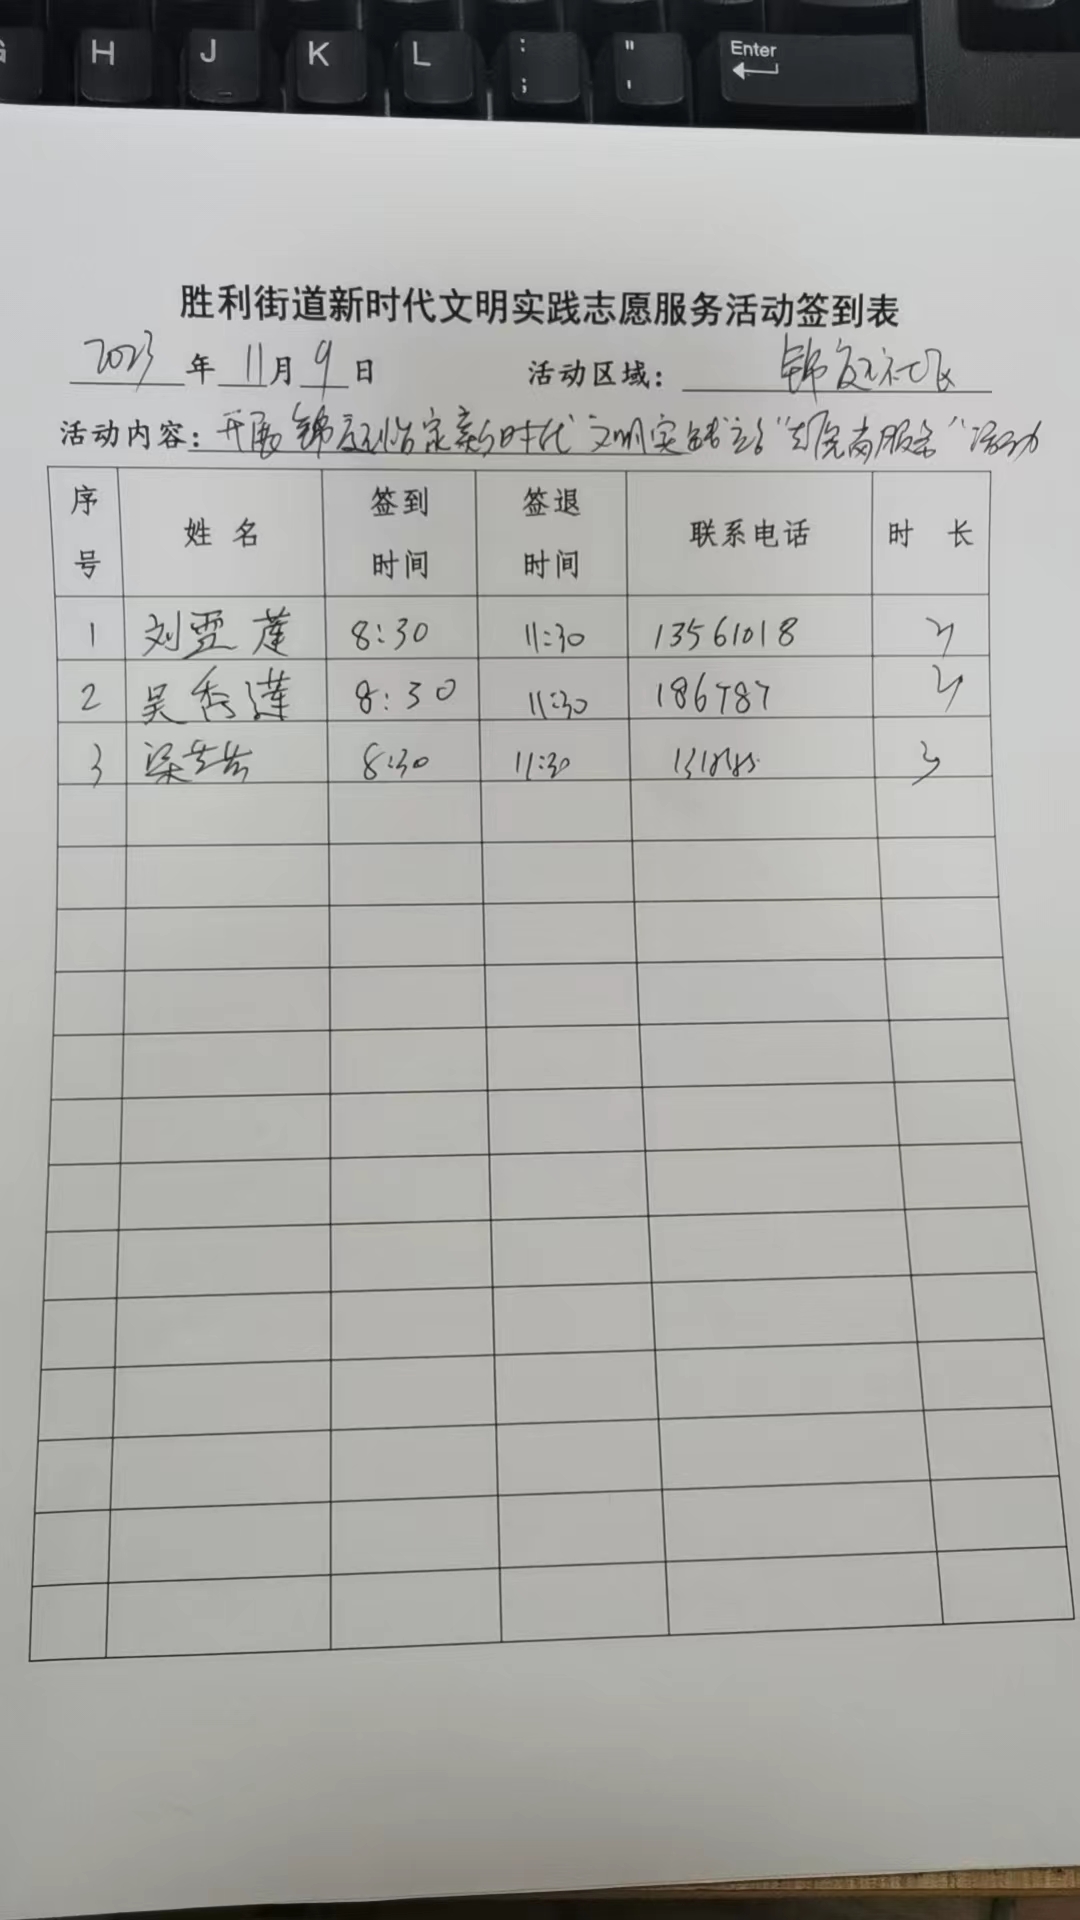 G H J K L : ; " ' Enter
胜利街道新时代文明实践志愿服务活动签到表
2023年11月9日 活动区域：锦庭社区
活动内容：开展锦庭 新时代文明实践 服务"活动
序号 姓名 签到时间 签退时间 联系电话 时长
1 刘雪莲 8:30 11:30 13561018 3
2 吴秀莲 8:30 11:30 186787 3
3 梁 8:30 11:30 3